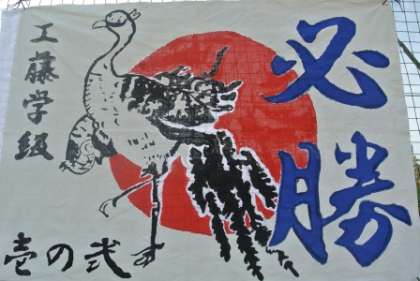 必勝
工藤学級
壱の弐